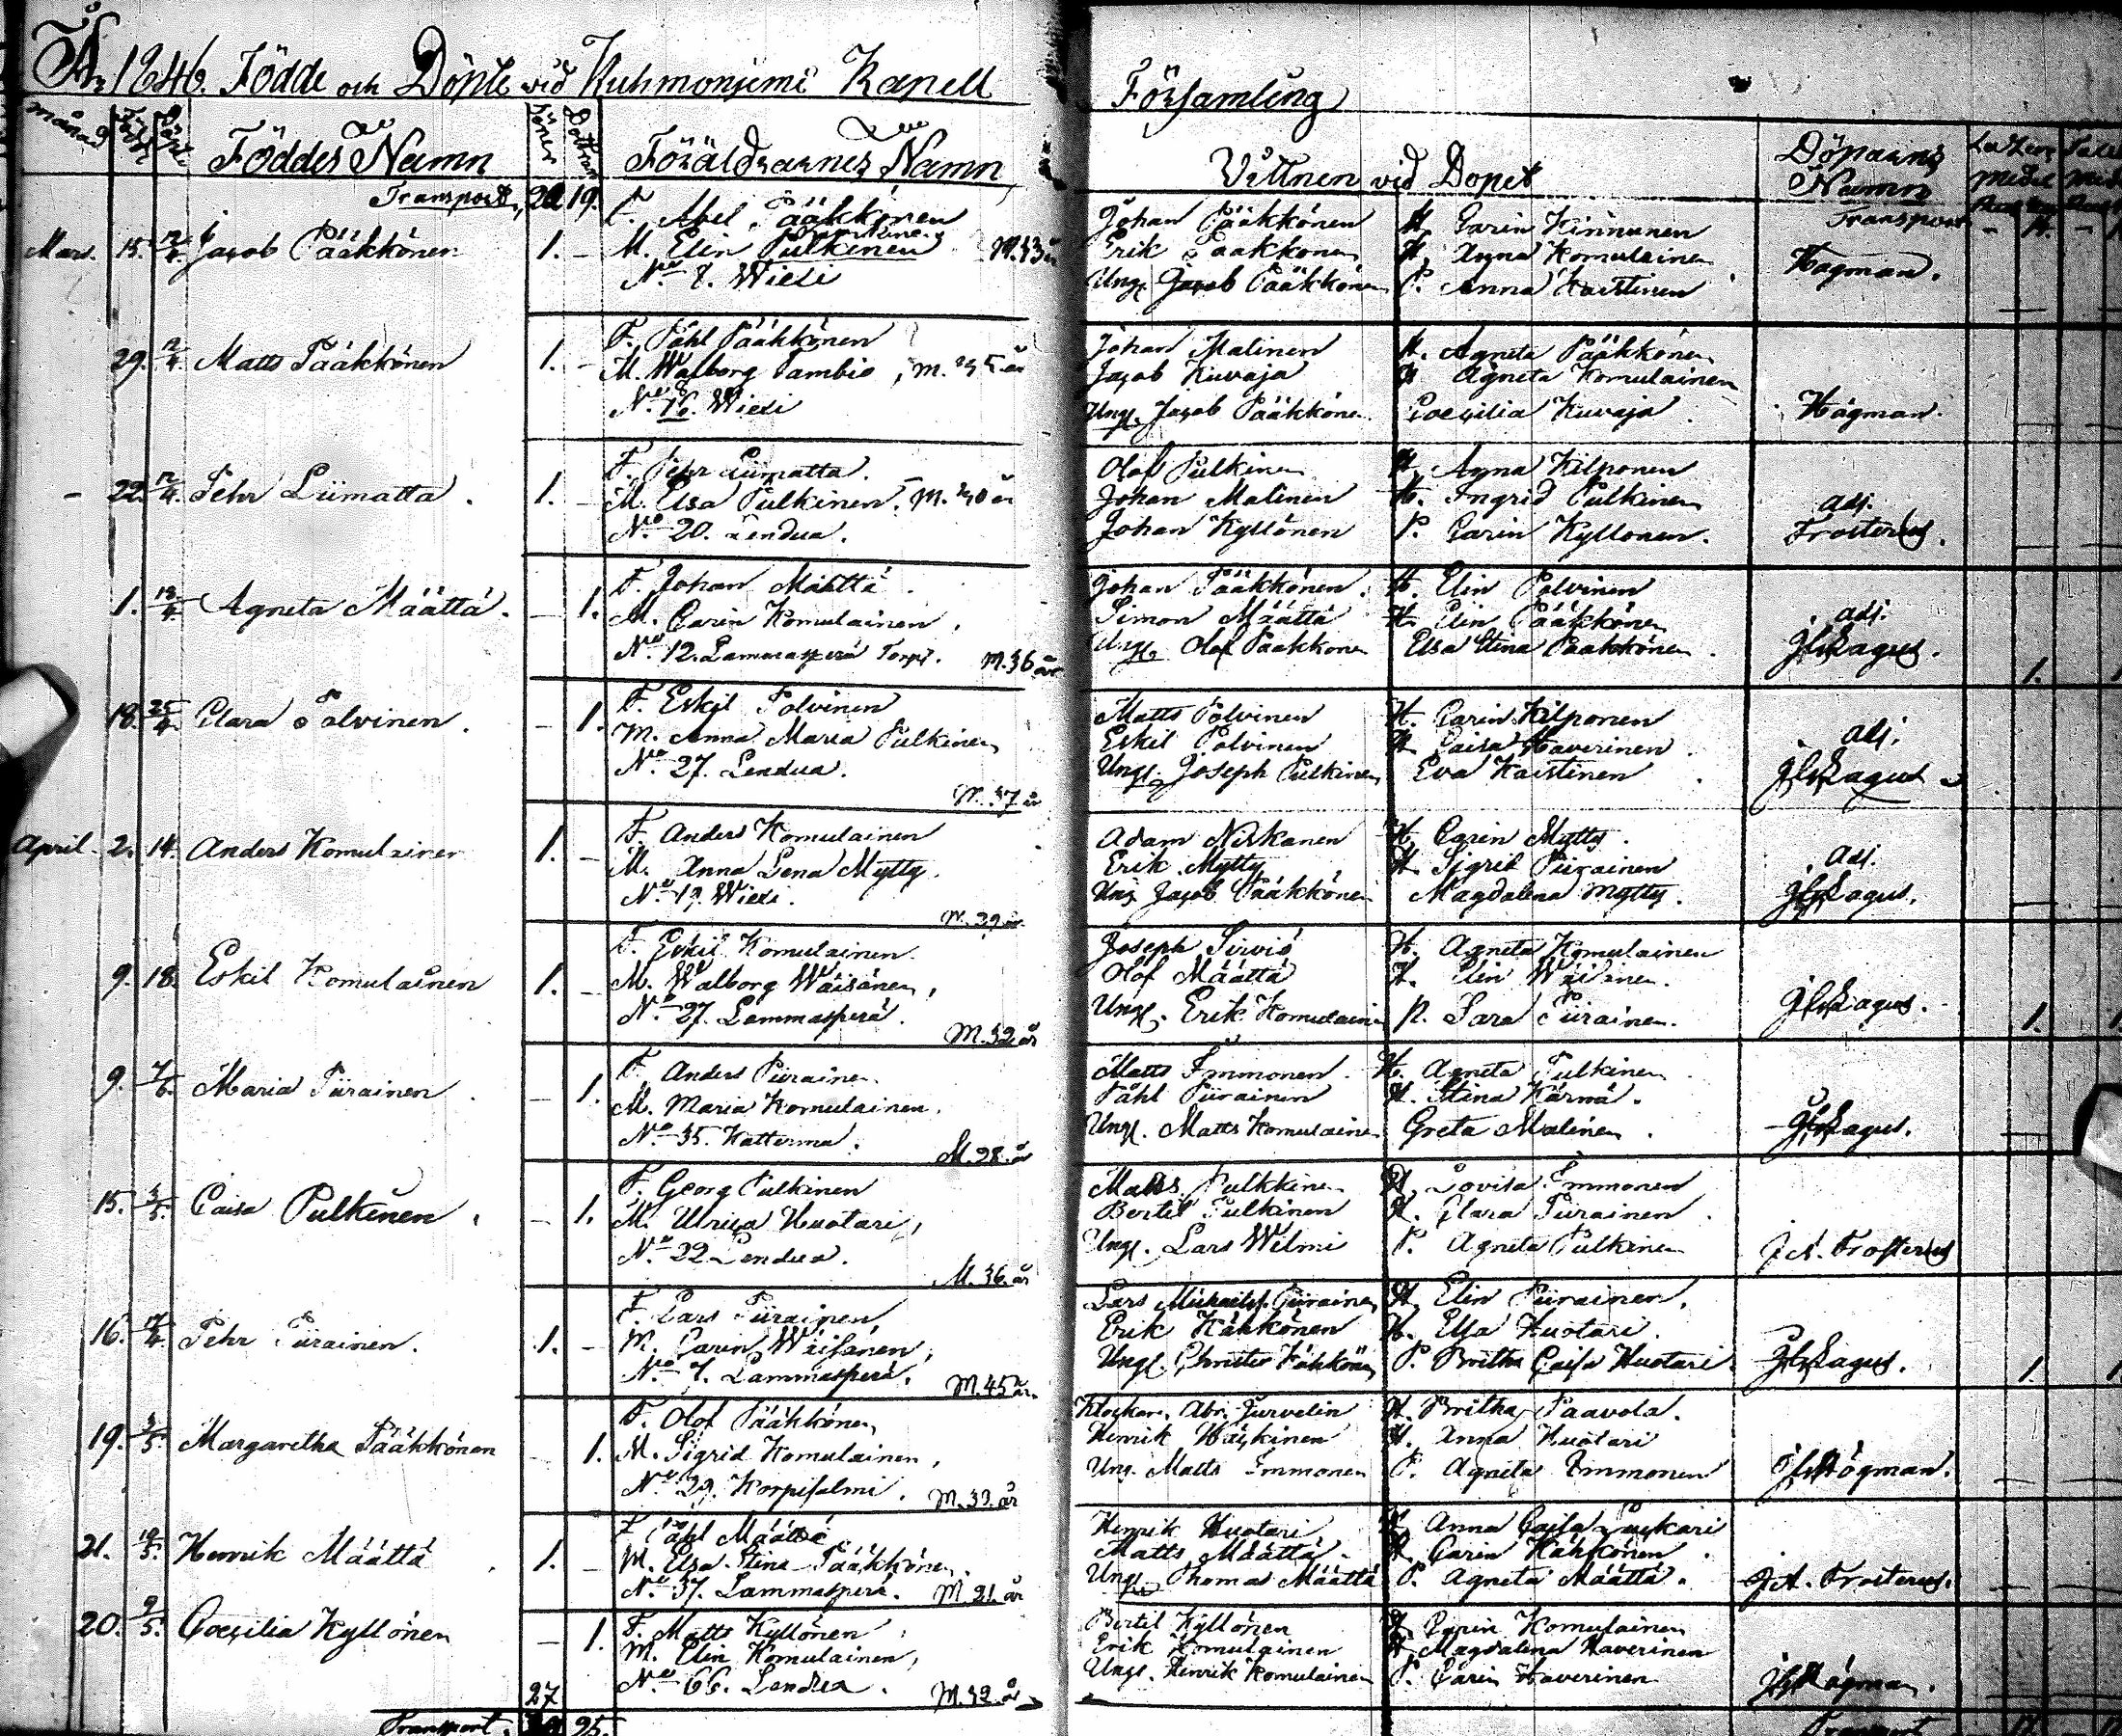 År 1846. Födde och Döpte vid Kuhmoniemi Kapell Församling
Månad Född Döpt Föddes Namn Söner Döttrar Föräldrarnes Namn Vittnen vid Dopet Döparens Namn
Transport, 19. Transport
F. Abel Pääkkönen Johan Pääkkönen H. Carin Kinnunen
Mars. 15. 12/4. Jacob Pääkkönen 1. – M. Elin Pulkinen M. 33 år Erik Pääkkönen H. Anna Komulainen Hogman.
No 8. Wiexi Ungl. Jacob Pääkkönen P. Anna Kaittinen
F. Påhl Pääkkönen Johan Malinen H. Agneta Pääkkönen
29. 12/4. Matts Pääkkönen 1. – M. Walborg Tambio, M. 35 år Jacob Kuvaja H. Agneta Komulainen
No 16. Wiexi Ungl. Jacob Pääkkönen Coecilia Kuvaja. Högman.
F. Pehr Liimatta. Olof Pulkinen H. Anna Kilponen
– 22. 12/4. Pehr Liimatta. 1. – M. Elsa Pulkinen. M. 30 år Johan Malinen H. Ingrid Pulkinen adj.
No 20. Lendua. Johan Kyllönen P. Carin Kyllönen. Frosterus.
F. Johan Määttä. Johan Pääkkönen. H. Elin Polvinen
1. 13/4. Agneta Määttä. – 1. M. Carin Komulainen, Simon Määttä H. Elin Pääkkönen adj.
No 12. Lammasperä Torp. M. 36 år Ungl. Olof Pääkkönen Elsa Stina Pääkkönen. Lagus. 1.
F. Eskil Polvinen Matts Polvinen H. Carin Kilponen
18. 25/4. Clara Polvinen. – 1. M. Anna Maria Pulkinen Eskil Polvinen H. Caisa Haverinen. adj.
No 27. Lendua. M. 37 år Ungl. Joseph Pulkinen Eva Kaittinen Lagus
F. Anders Komulainen Adam Niskanen H. Carin Mytty.
April. 2. 14. Anders Komulainen 1. – M. Anna Lena Mytty. Erik Mytty H. Sigrid Piirainen adj.
No 19. Wiexi. M. 39 år Ungl. Jacob Pääkkönen Magdalena Mytty. Lagus.
F. Eskil Komulainen. Joseph Sirviö H. Agneta Komulainen
9. 18. Eskil Komulainen 1. – M. Walborg Wäisänen, Olof Määttä H. Elin Wäisänen.
No 27. Lammasperä. M. 32 år Ungl. Erik Komulainen P. Sara Piirainen. Lagus. 1.
F. Anders Piirainen. Matts Immonen. H. Agneta Pulkinen
9. Maria Piirainen – 1. M. Maria Komulainen. Påhl Piirainen H. Stina Kärnä.
No 35. Katterma. M. 28 år Ungl. Matts Komulainen Greta Malinen. Lagus.
F. Georg Pulkinen Matts Pulkkinen H. Lovisa Immonen
15. 3/5. Caisa Pulkinen. – 1. M. Ulrica Huotari, Bertil Pulkinen H. Clara Piirainen.
No 22 Lendua. M. 36 år Ungl. Lars Wilmi P. Agneta Pulkinen J. A. Frosterus
F. Lars Piirainen Lars Michailss. Piirainen H. Elin Piirainen.
16. Pehr Piirainen. 1. – M. Carin Wäisänen, Erik Kähkönen H. Elsa Huotari.
No 7. Lammasperä. M. 45 år. Ungl. Christer Kähkönen P. Britha Caisa Huotari Lagus. 1.
F. Olof Pääkkönen Klockare. Abr. Jurvelin H. Britha Paavola.
19. 3/5. Margaretha Pääkkönen – 1. M. Sigrid Komulainen, Henrik Haykinen H. Anna Huotari
No 29. Korpisalmi. M. 33 år Ungl. Matts Immonen P. Agneta Immonen Högman.
F. Påhl Määttä Henrik Huotari H. Anna Caisa
21. 10/5. Henrik Määttä. 1. – M. Elsa Stina Pääkkönen. Matts Määttä H. Carin Kähkönen.
No 37. Lammasperä. M. 21 år Ungl. Thomas Määttä P. Agneta Määttä. J. A. Frosterus.
F. Matts Kyllönen Bertil Kyllönen H. Carin Komulainen
20. 9/5. Coecilia Kyllönen – 1. M. Elin Komulainen, Erik Komulainen H. Magdalena Haverinen
No 66. Lendua. M. 32 år Ungl. Henrik Komulainen P. Carin Haverinen Högman.
27
Transport. 25. Transport